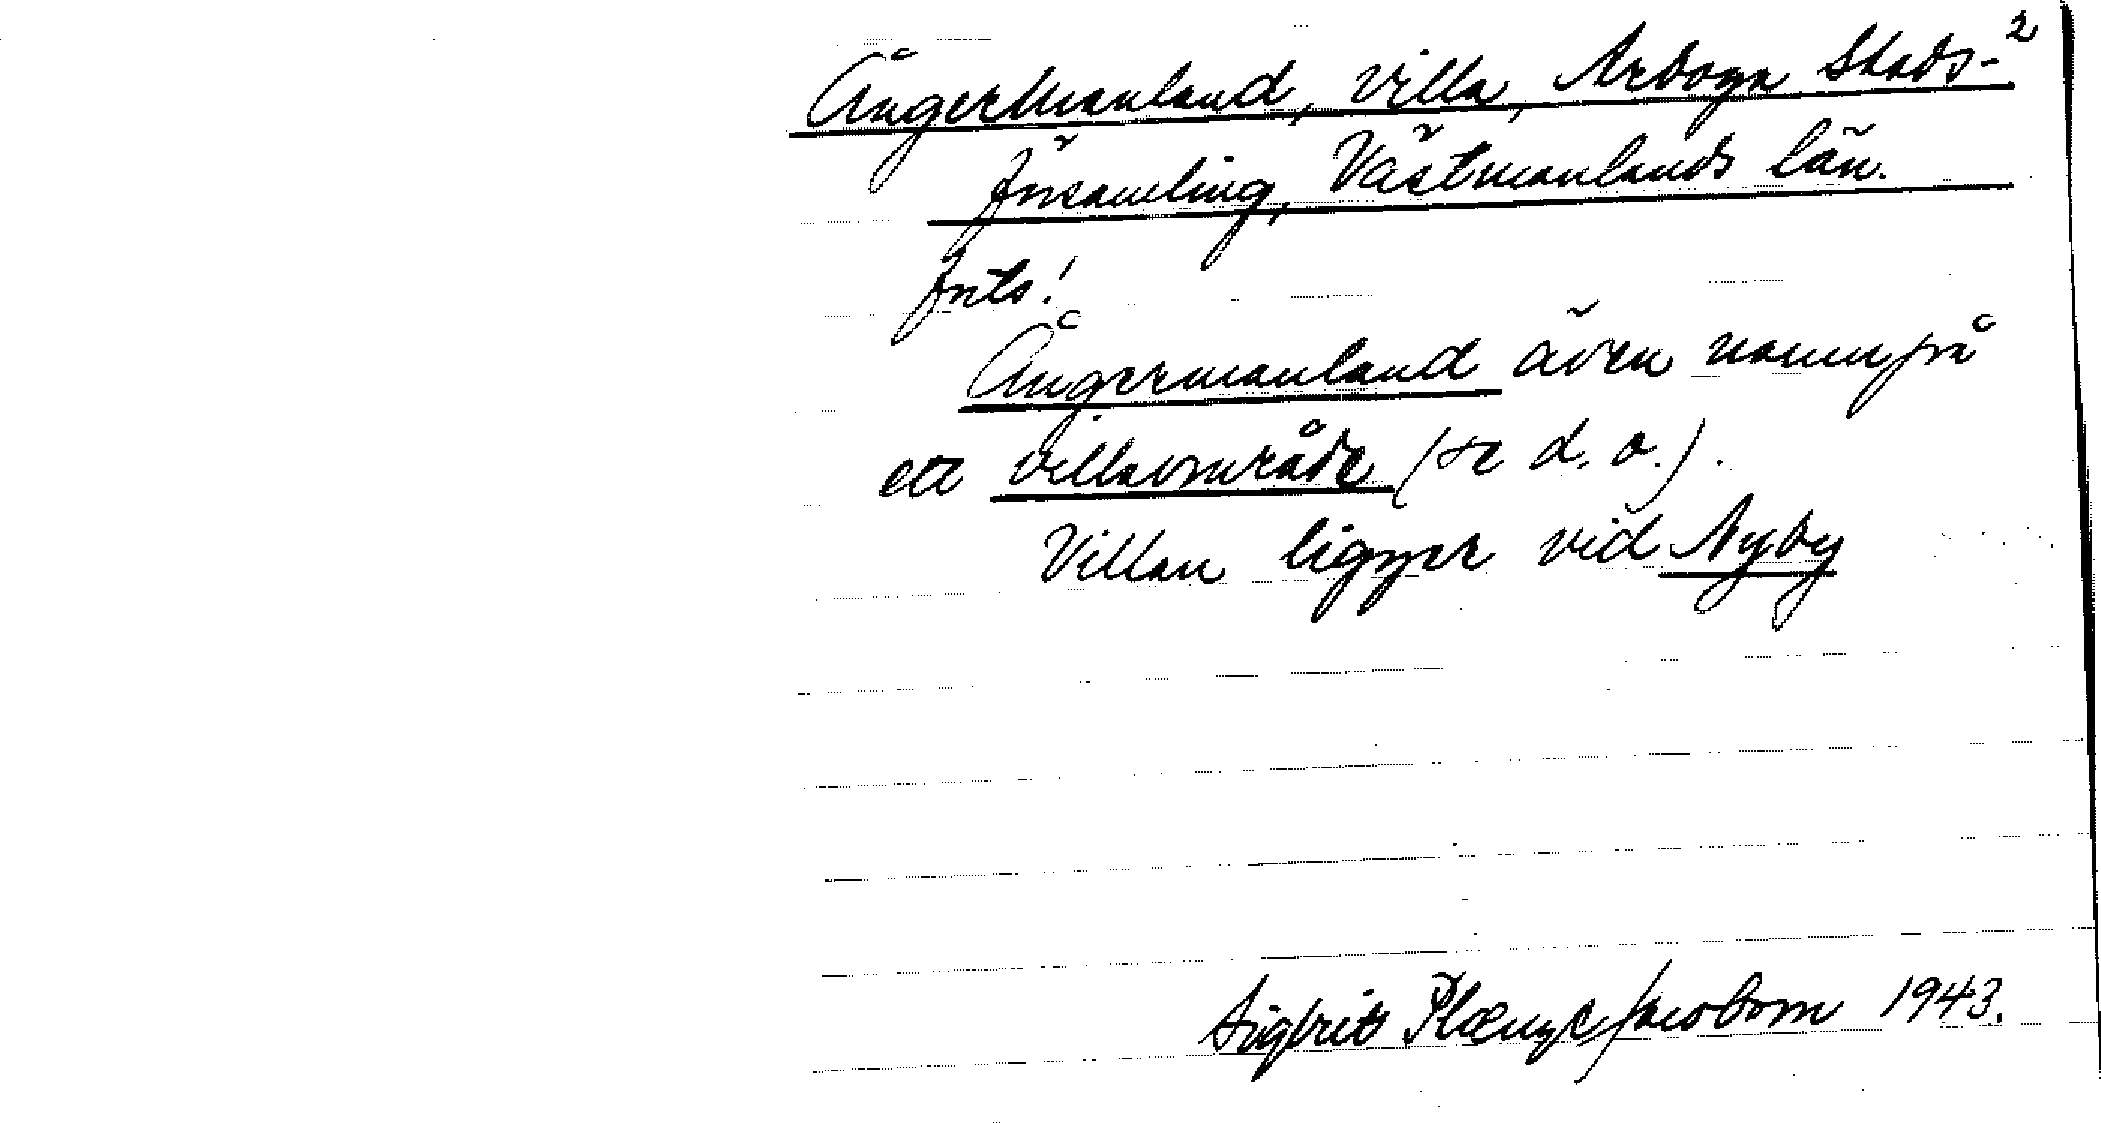 2
Ångermanland, villa, Arboga Stads-
församling, Västmanlands län.
forts!
Ångermanland även namn på
ett villaområde (se d. o.).
Villan ligger vid Nyby
Sigfrid 1943.